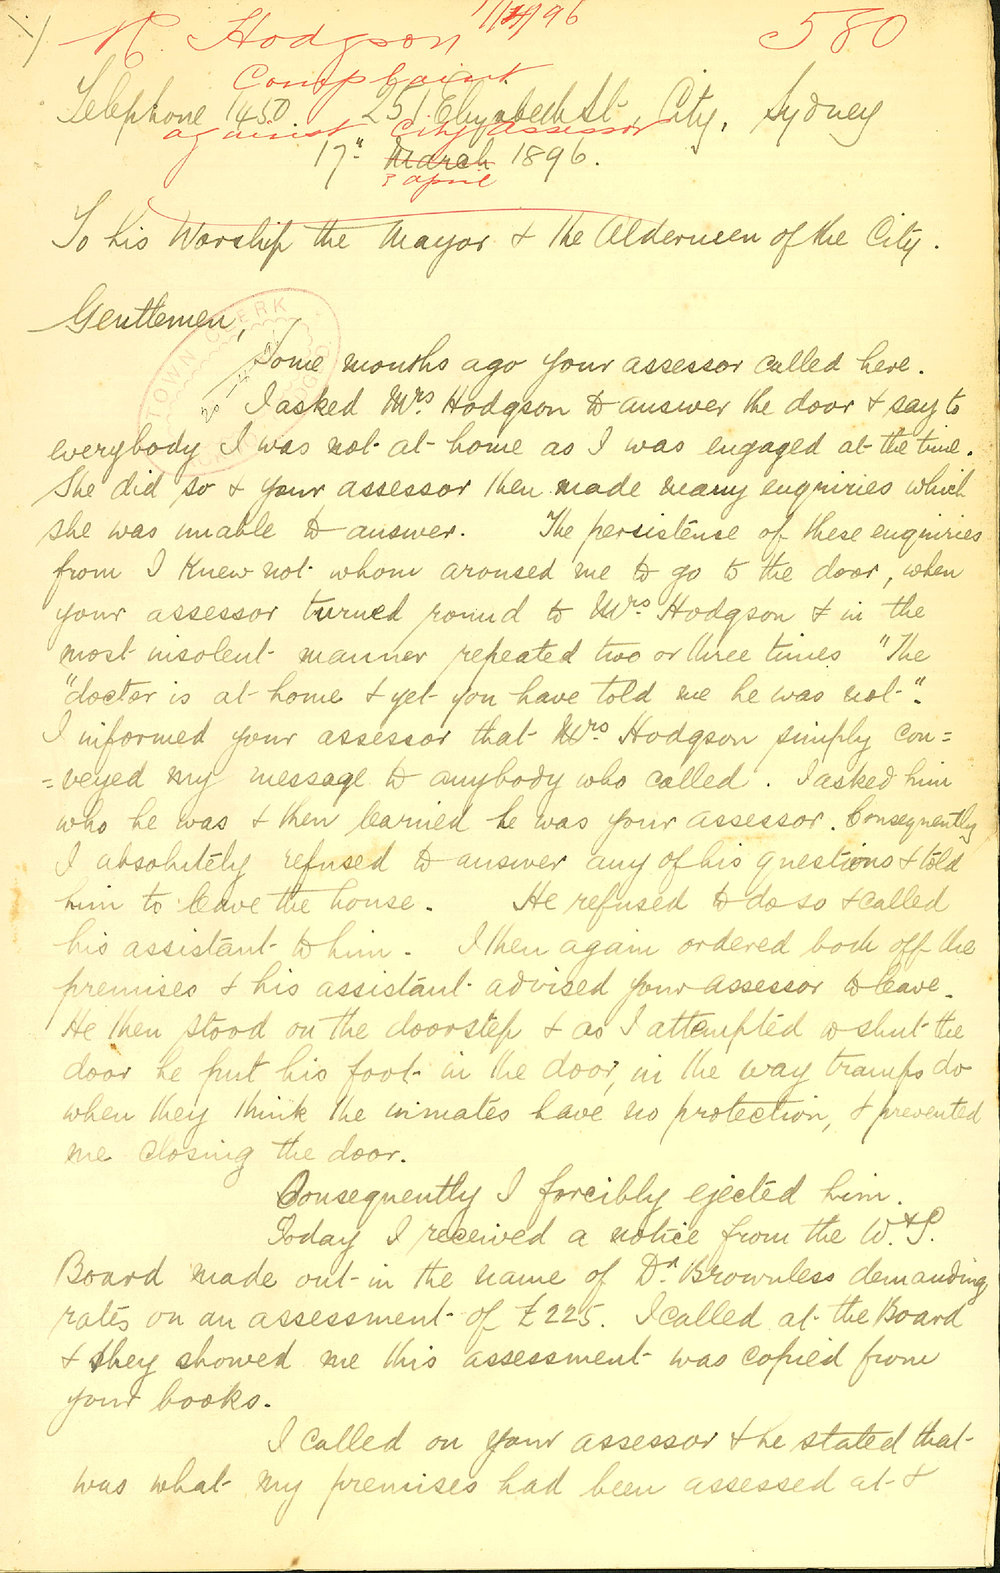 R. Hodgson 17/4/96 580
Complaint
Telephone 1450 251 Elizabeth St, City, Sydney
against City Assessor
17th March 1896.
? april
To his Worship the Mayor & the Aldermen of the City.
Gentlemen,
TOWN CLERK
Some months ago your assessor called here.
I asked Mrs. Hodgson to answer the door & say to
everybody I was not at home as I was engaged at the time.
She did so & your assessor then made many enquiries which
she was unable to answer. The persistense of these enquiries
from I knew not whom aroused me to go to the door, when
your assessor turned round to Mrs Hodgson & in the
most insolent manner repeated two or three times "The
"doctor is at home & yet you have told me he was not".
I informed your assessor that Mrs Hodgson simply con=
=veyed my message to anybody who called. I asked him
who he was & then learned he was your assessor. Consequently
I absolutely refused to answer any of his questions & told
him to leave the house. He refused to do so & called
his assistant to him. I then again ordered both off the
premises & his assistant advised your assessor to leave.
He then stood on the doorstep & as I attempted to shut the
door he put his foot in the door, in the way tramps do
when they think the inmates have no protection, & prevented
me closing the door.
Consequently I forcibly ejected him.
Today I received a notice from the W. & S.
Board made out in the name of Dr. Brownless demanding
rates on an assessment of £225. I called at the Board
& they showed me this assessment was copied from
your books.
I called on your assessor & he stated that
was what my premises had been assessed at &